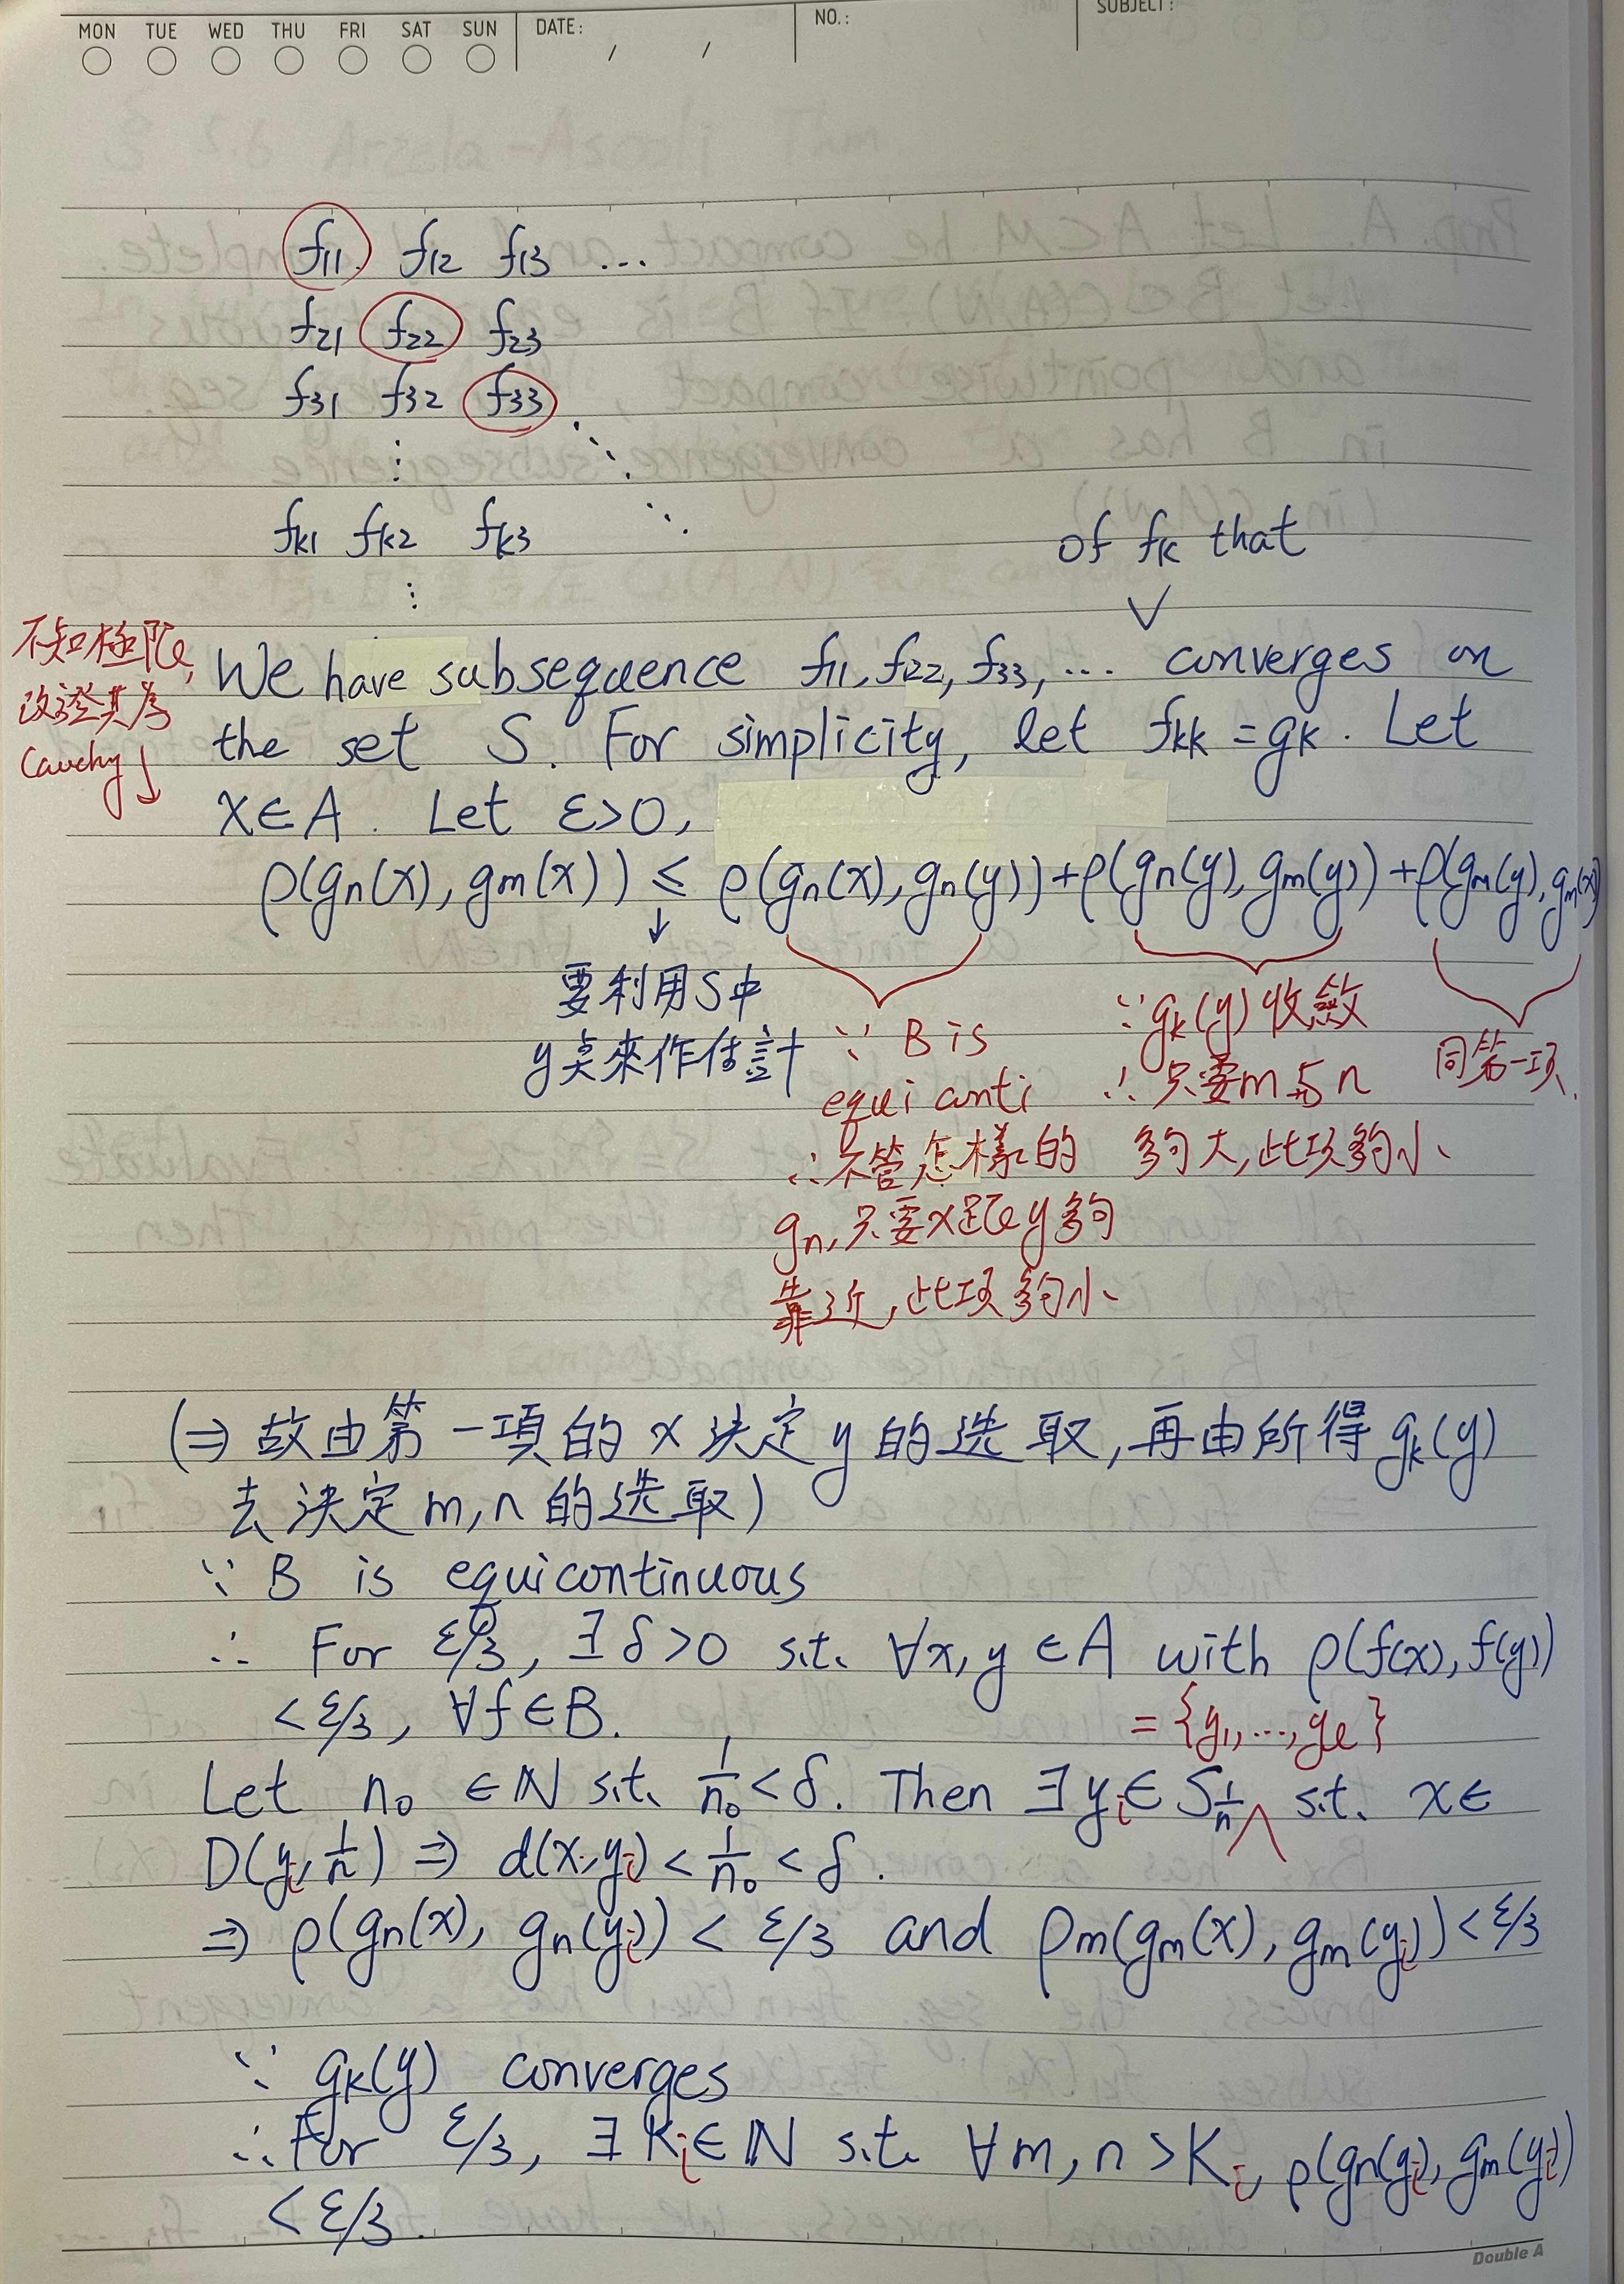 MON TUE WED THU FRI SAT SUN DATE: / / NO.: SUBJECT:
f11 f12 f13 ...
f21 f22 f23
f31 f32 f33
⋮ ⋱
fk1 fk2 fk3 ⋱
⋮
of fk that
∨
We have subsequence f11, f22, f33, ... converges on
the set S. For simplicity, let fkk = gk. Let
x∈A. Let ε>0,
不知極限,
改證其為
Cauchy↓
ρ(gn(x), gm(x)) ≤ ρ(gn(x), gn(y)) + ρ(gn(y), gm(y)) + ρ(gm(y), gm(x))
↓
要利用S中
y點來作估計
∵ B is
equi conti
∴不管怎樣的
gn, 只要x距y夠
靠近, 此項夠小
∵gk(y)收斂
∴只要m与n
夠大, 此項夠小
同第一項
(⇒ 故由第一項的 x 決定 y 的选取, 再由所得 gk(y)
去決定 m, n 的选取)
∵ B is equicontinuous
∴ For ε/3, ∃ δ>0 s.t. ∀x, y ∈A with ρ(f(x), f(y))
< ε/3, ∀f∈B.
= {y1, ..., yℓ}
Let n0 ∈ℕ s.t. 1/n0 < δ. Then ∃ yi∈ S1/n ∧ s.t. x∈
D(yi, 1/n) ⇒ d(x, yi) < 1/n0 < δ.
⇒ ρ(gn(x), gn(yi)) < ε/3 and ρm(gm(x), gm(yi)) < ε/3
∵ gk(y) converges
∴ For ε/3, ∃ Ki∈ℕ s.t. ∀m, n > Ki, ρ(gn(yi), gm(yi))
< ε/3.
Double A